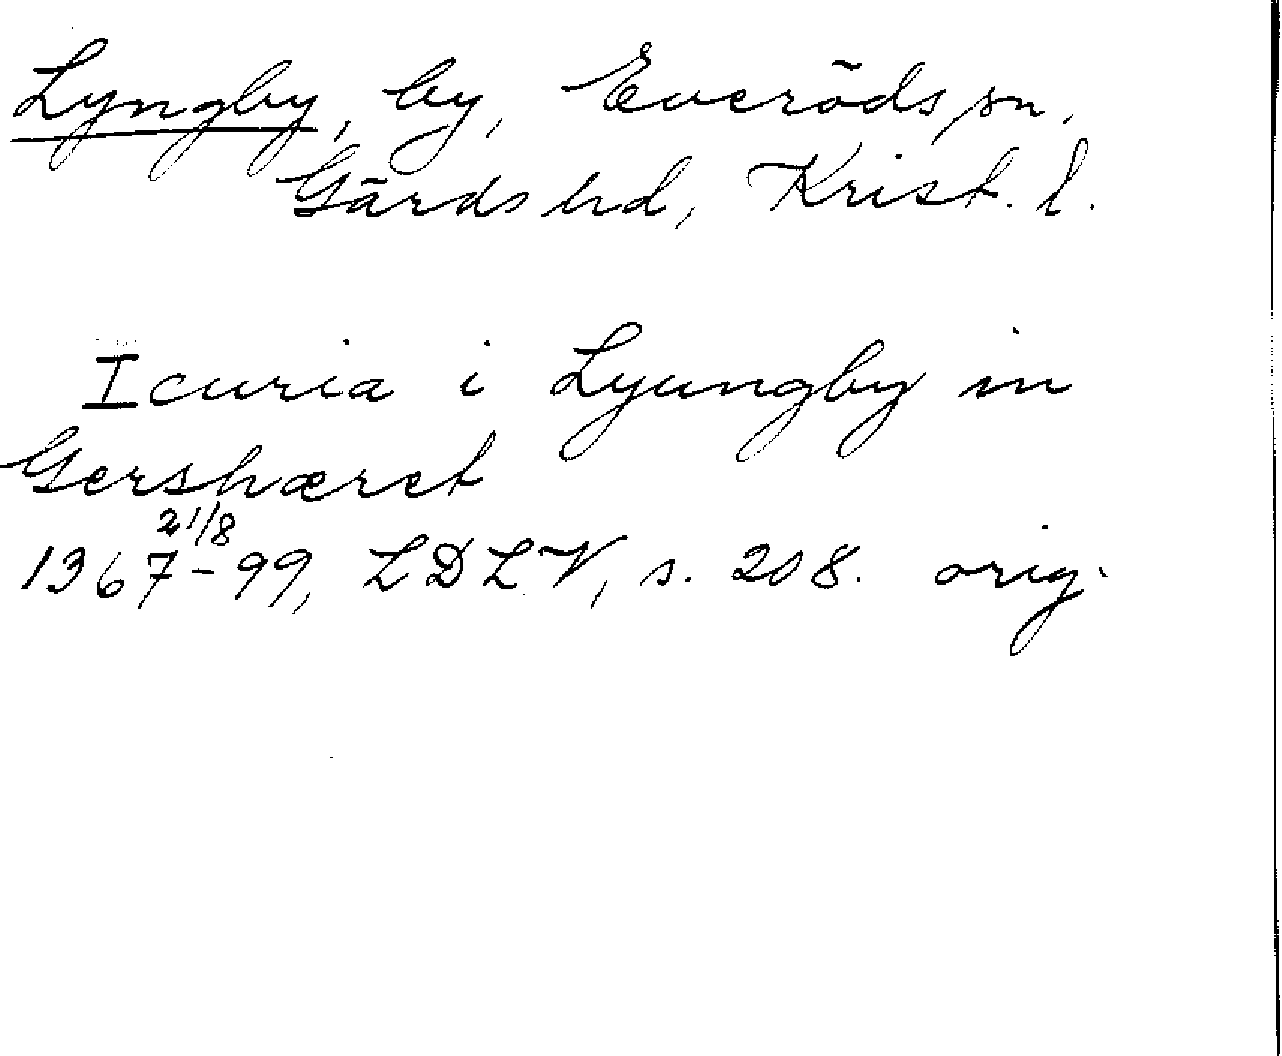 Lyngby, by, Everöds sn,
Gärds hd, Krist. l.
I curia i Lyungby in
Gershæret
21/8
1367-99, LDLV, s. 208. orig.